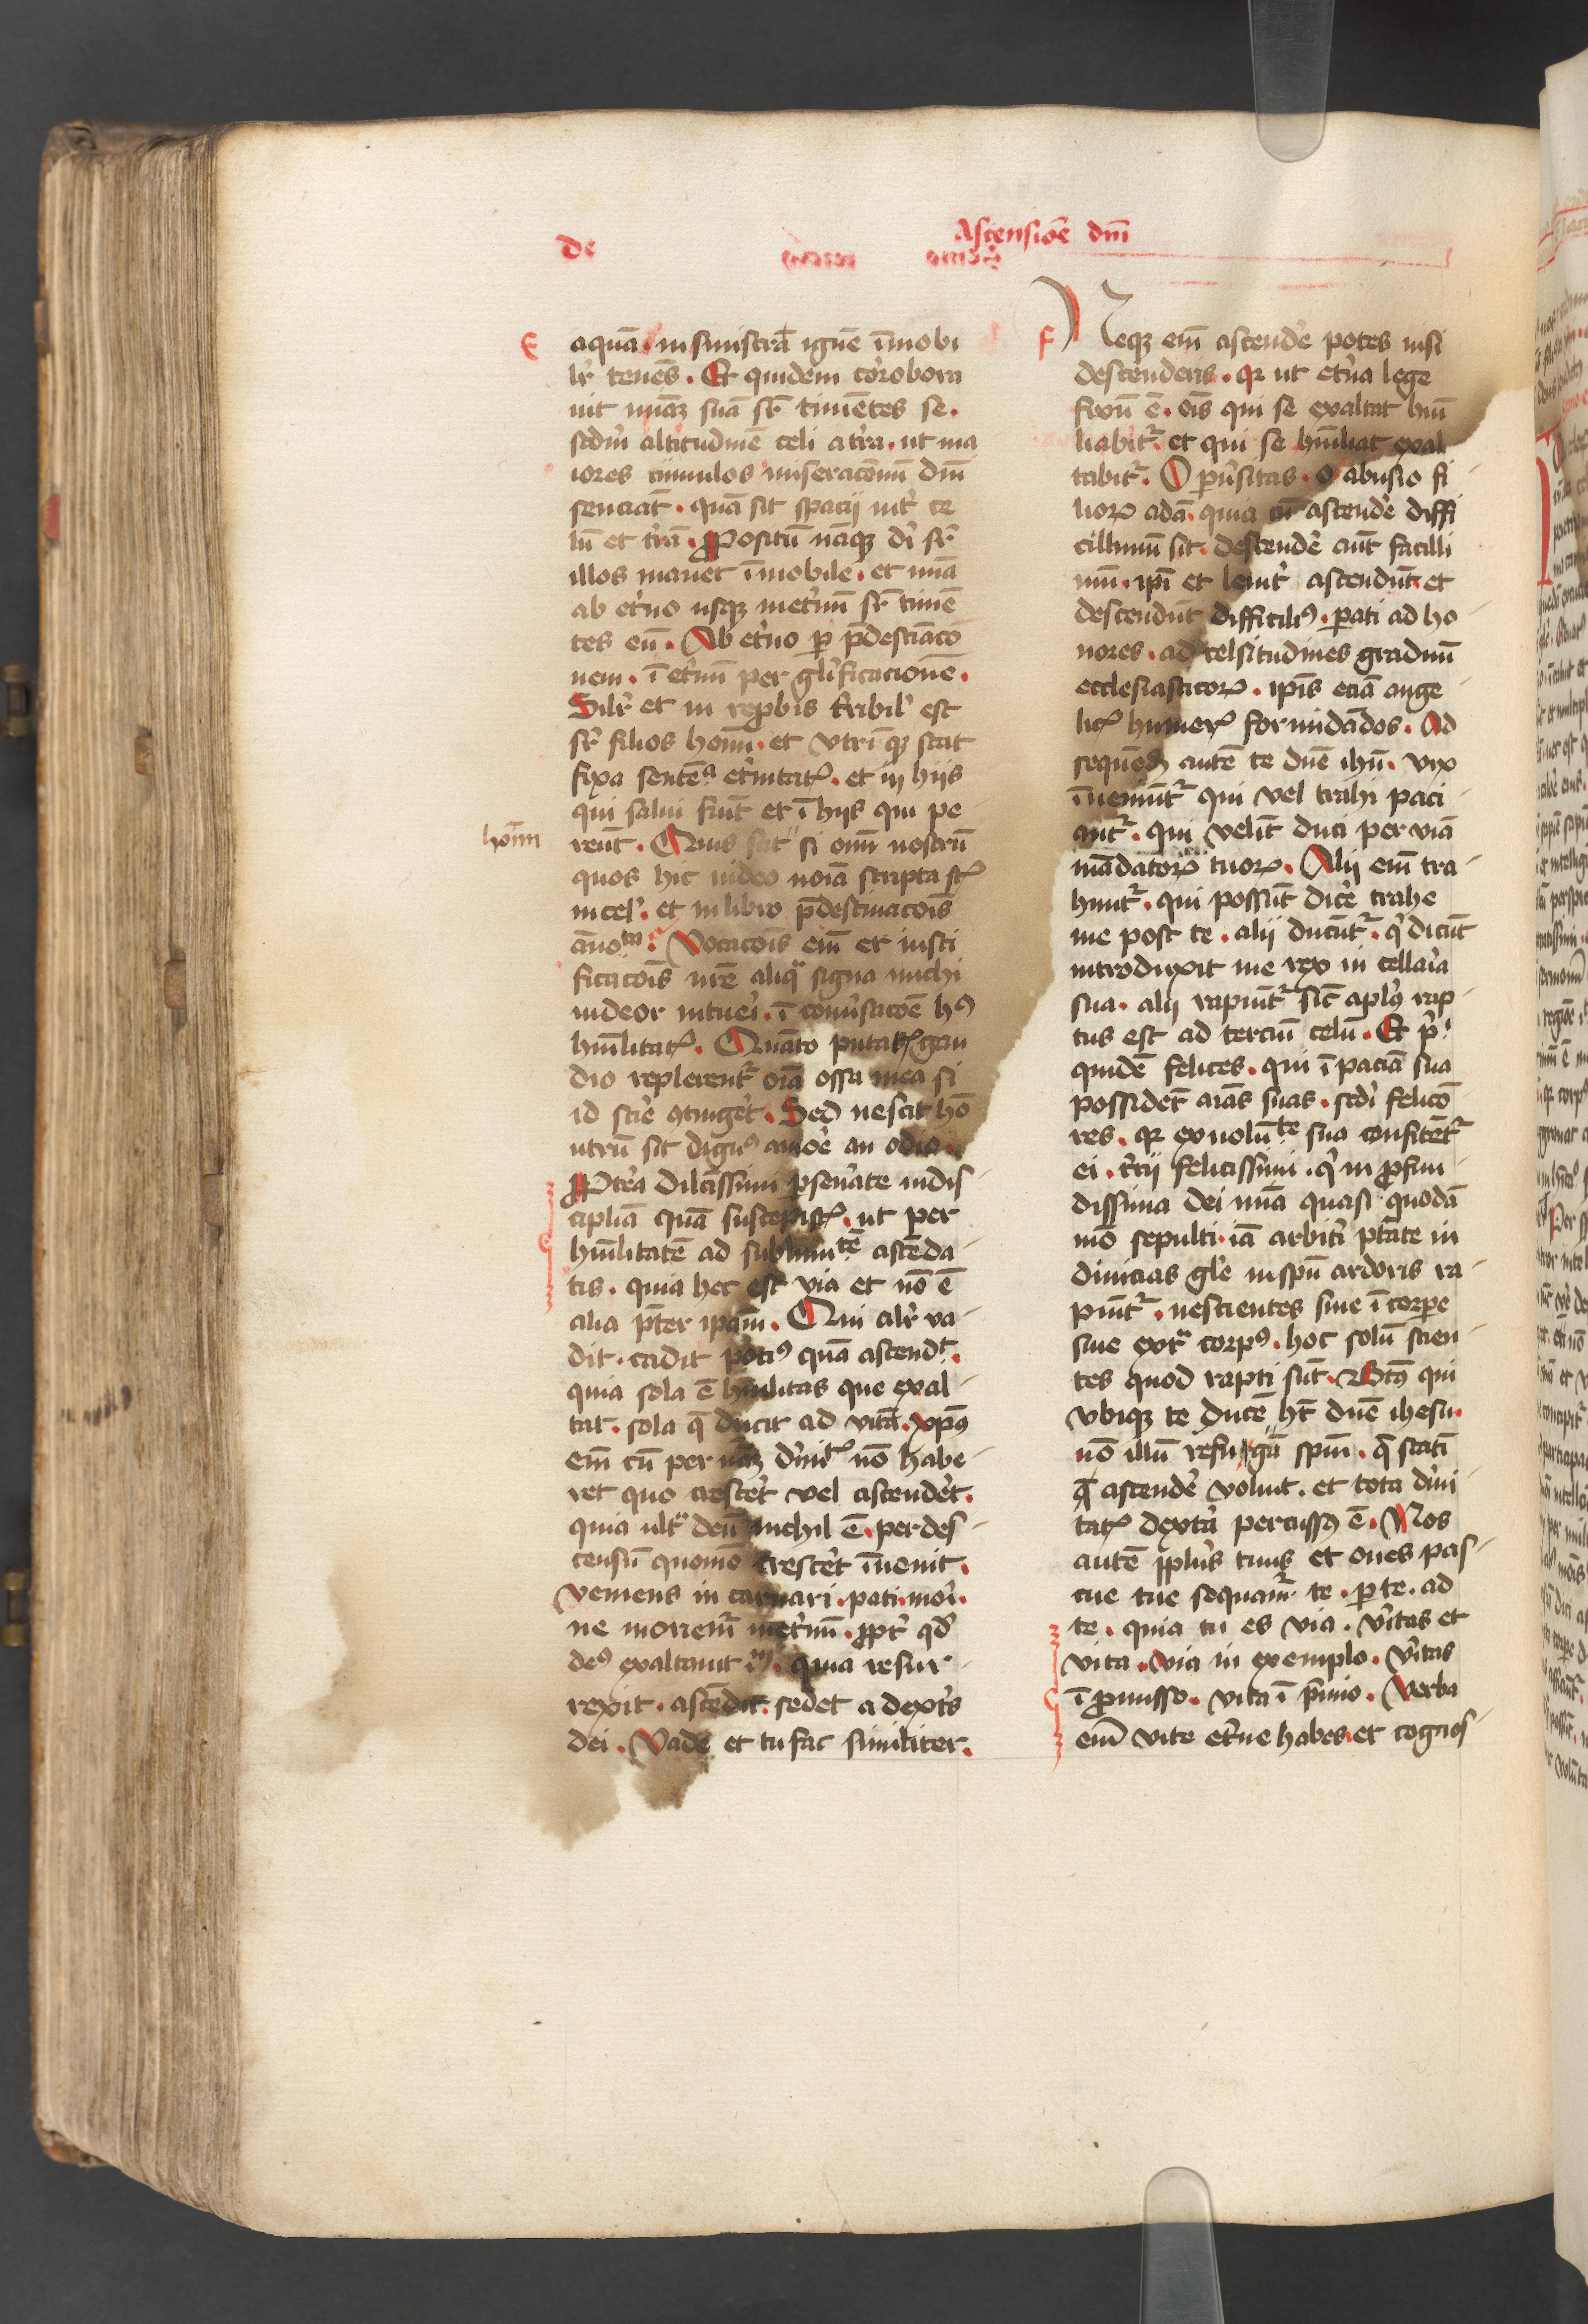 de Ascensiōe dn̄i
E
aquā in sinistrā ignē īmobi
lr̄ tenēs. Et quidem cōrobora
uit mīaꝫ suā sr̄ timētes se.
scdm̄ altitudinē celi a tr̄a. ut ma
iores cumulos miseracōnū dn̄i
senciāt. quā sit spacij int̄ ce
lū et tr̄ā. Ꝓpositū nāqꝫ dī sr̄
illos manet īmobile. et mīa
ab et̄no usqꝫ in et̄nū sr̄ timē
tes eū. Ab et̄no ꝑ p̄destiāco
nem. ī et̄nū per glīficacionē.
Silr̄ et in reꝓbis t̄ribil' est
sr̄ filios hoīm. et vtrīqꝫ stat
fixa sentēꝰ et̄nitatꝭ. et in hijs
qui salui fiūt et ī hijs qui pe
reūt. Quis scit si om̄ nostrū
hoīm
quos hic uideo noīa scripta sꝭ
in cel'. et in libro p̄destinacōis
ān̄oᵗᵃ. Vocacōis em̄ et iusti
ficacōis nr̄e aliqᷓ signa michi
uideor intueri. ī conūsacōe hꝰ
hūilitatꝭ. Quāto putatꝭ gau
dio replerent᷑ oīa ossa mea si
id scīe ꝯtinget̄. Sed nescit hō
utrū sit dignꝰ amōe an odio.
Ꝓpt̄ea dilc̄issimi ꝑseūate in dis
ciplīa quā suscepistꝭ. ut per
hūilitatē ad sublimᵗē ascēda
tis. quia hec est via et nō ē
alia p̄ter ipam̄. Qui alr̄ va
dit. cadit potiꝰ quā ascendᵗ.
quia sola ē hūilitas que exal
tat. sola q̄ ducit ad vitā. xp̄c
em̄ cū per naꝫ dīnitꝭ nō habe
ret quo crescet̄ vel ascendet̄.
quia ultᷓ deū nichil ē. per des
censū quomō crescet̄ īuenit.
veniens in carnari. pati. mori.
ne morem̄ in et̄nū. ꝓpt̄ qd̄
deꝰ exaltauit īm. quia resur
rexit. ascēdit. sedet a dext̄s
dei. Vade et tu fac similiter.
F
Neqꝫ em̄ ascendē potes nisi
descenderis. qꝛ ut et̄na lege
fixū ē. oīs qui se exaltat hūi
liabit᷑. et qui se hūiliat exal
tabit᷑. O ꝑūsitas. o abusio fi
lioꝝ adā. quia cū ascendē diffi
cillimū sit. descendē aūt facilli
mū. ipī et leuit̄ ascendūt et
descendūt difficiliꝰ. ꝑati ad ho
nores. ad celsitudines graduū
ecclesiasticoꝝ. ipīs eciā ange
licꝭ humerꝭ formidādos. Ad
sequēdꝫ autē te dnē ihū. vix
īueniūt᷑ qui vel trahi paci
ant᷑. qui velīt duci per viā
mādatoꝝ tuoꝝ. Alij em̄ tra
hūnt᷑. qui possūt dicē trahe
me post te. alij ducūt᷑. qͥ dicūt
introduxit me rex in cellaria
sua. alij rapiūt᷑ sic̄ aplꝰ rap
tus est ad terciū celū. Et pͥ
quidē felices. qui ī paciā sua
possidēt aīas suas. scdī felicō
res. qꝛ ex volūᵗᵉ sua confitēt᷑
ei. t̄cij felicissimi. qͥ in ꝓfun
dissima dei mīa quasi quodā
mō sepulti. iā arbitrī ptāte in
diuicias glīe in spū ardoris ra
piūt᷑. nescientes siue ī corꝑe
siue extᷓ corpꝰ. hoc solū scien
tes quod rapti sūt. Btūs qui
vbiqꝫ te ducē hꝫ dnē ihesu.
nō illū refugā spm̄. q̄ stati
q̄ ascendē voluit. et tota dīni
tatꝭ dext̄a percussꝰ ē. Nos
autē pplūs tuus et oues pas
cue tue sequam᷑ te. ꝑ te. ad
te. quia tu es via. vītas et
vita. Via in exemplo. vītas
ī ꝓmisso. vita ī p̄mio. Verba
em̄ vite et̄ne habes. et cognos